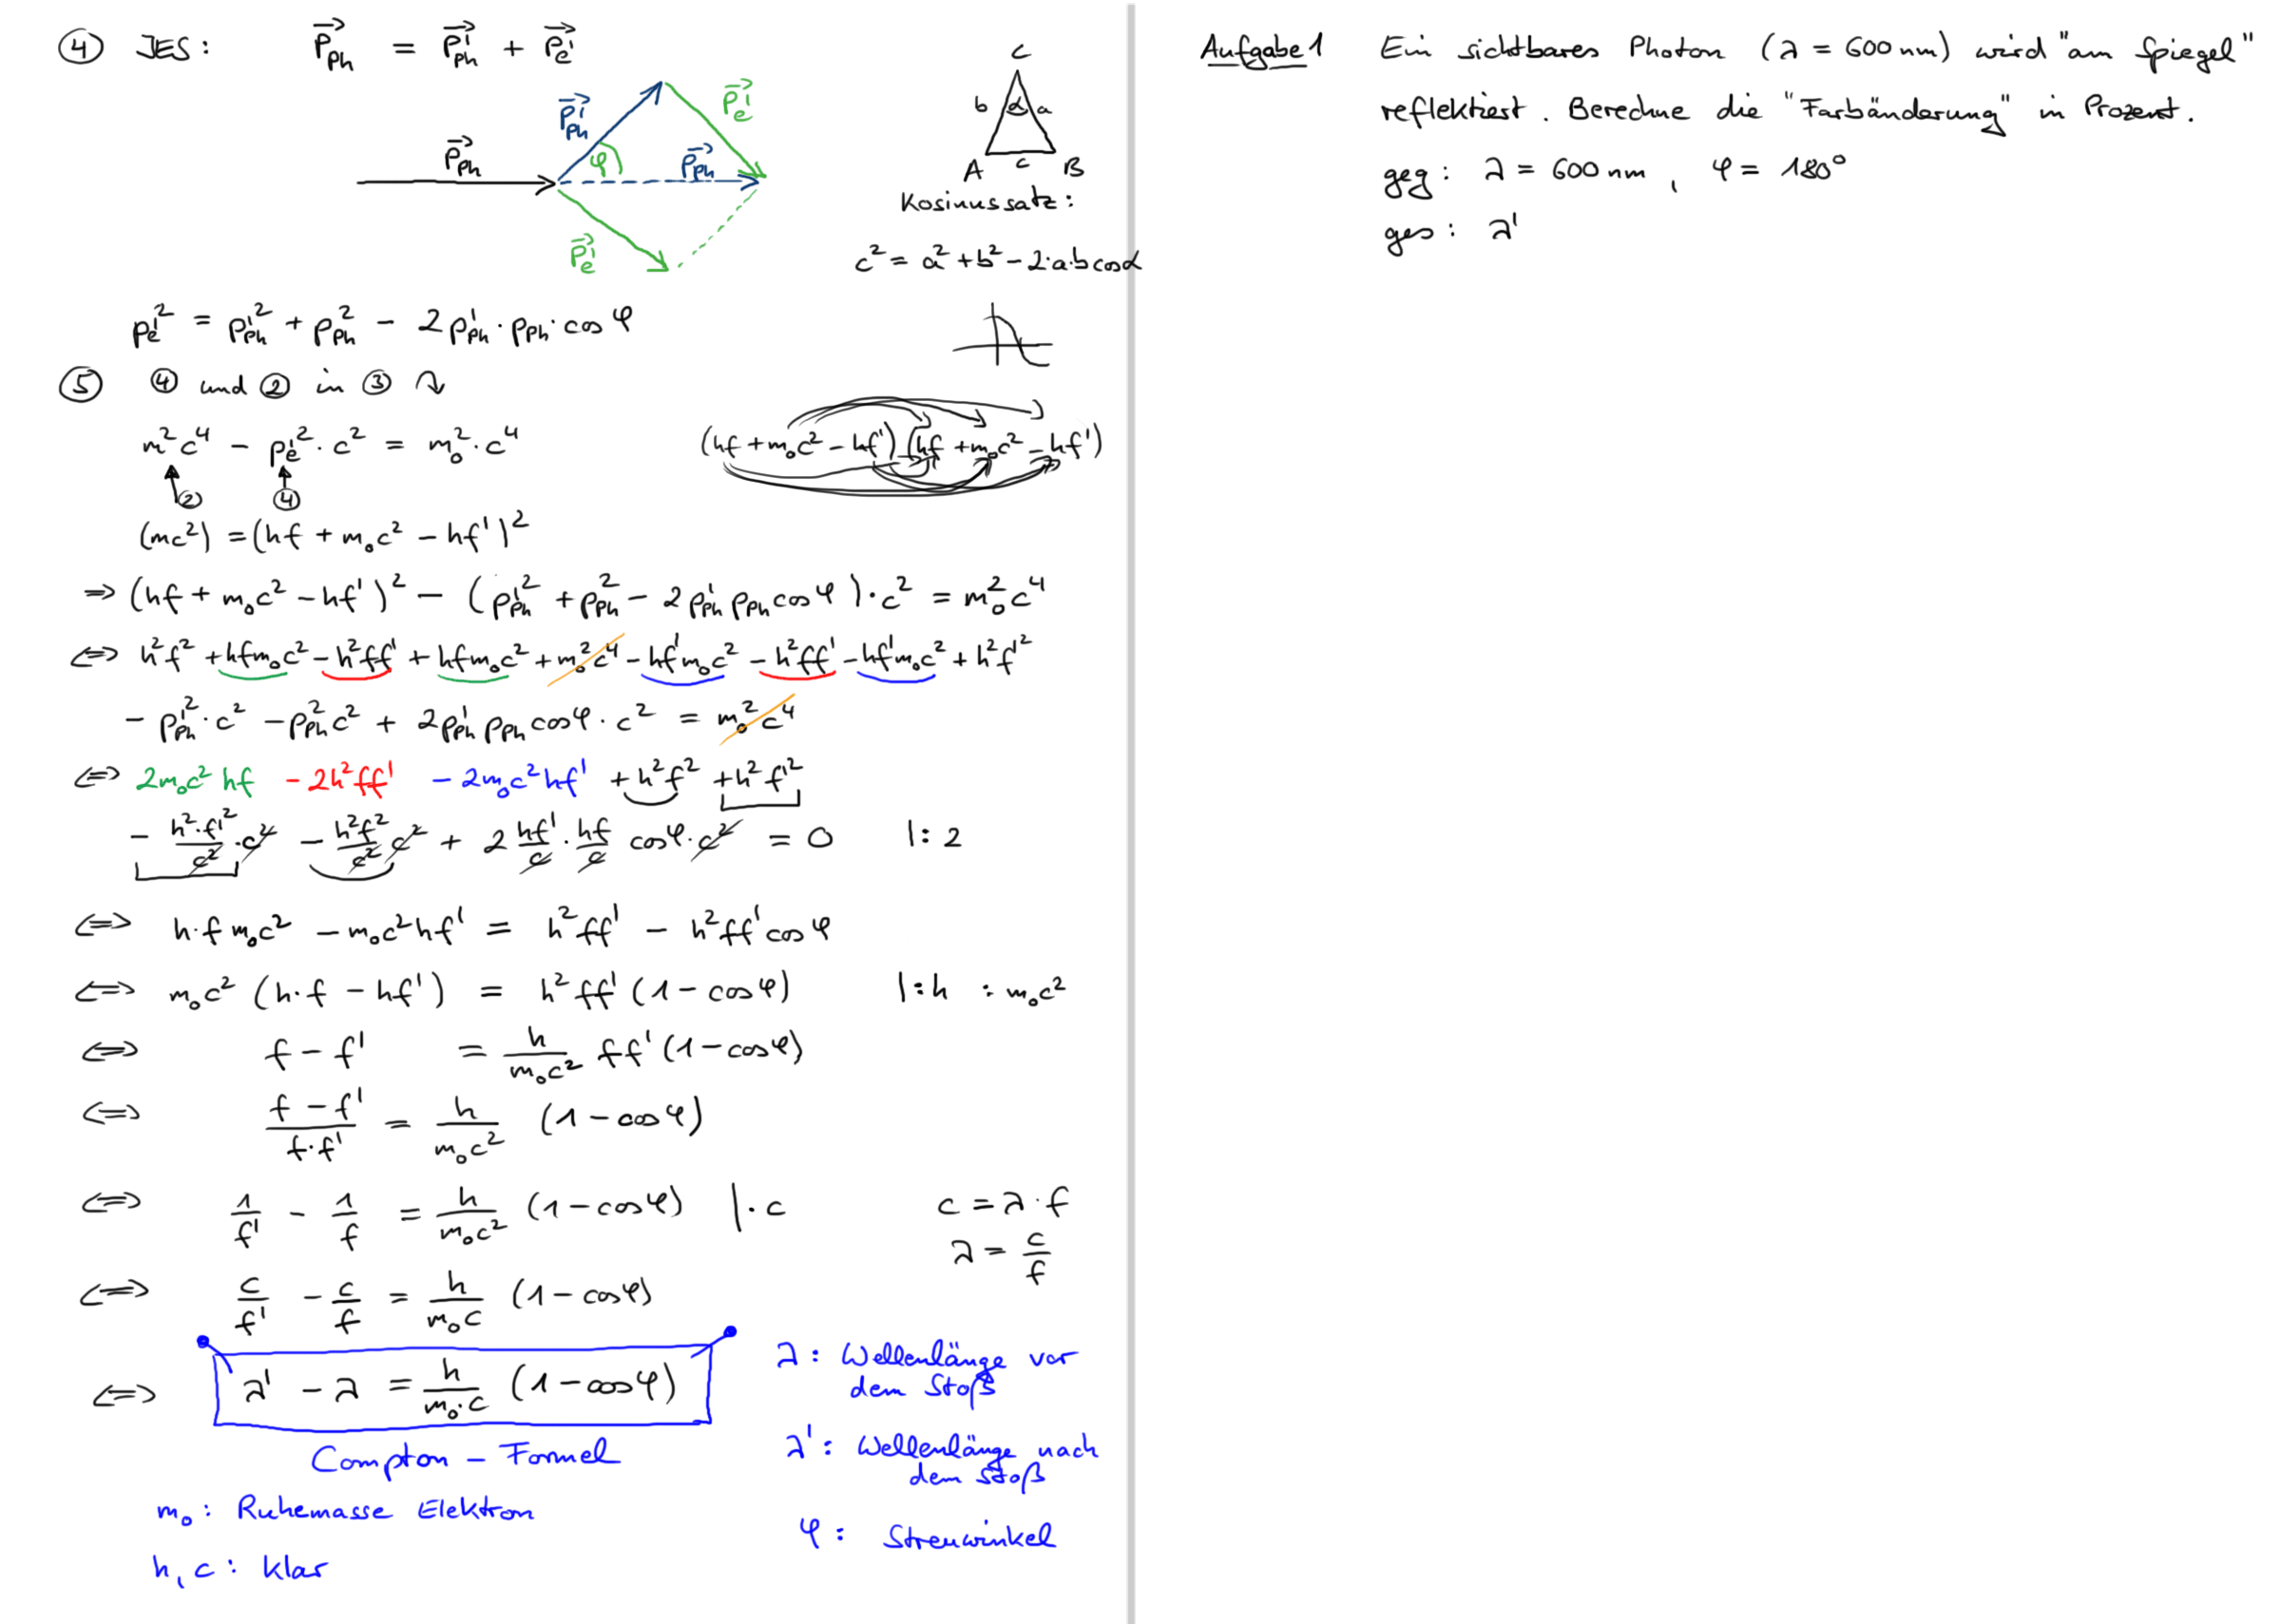 ④ JES: p⃗_Ph = p⃗'_Ph + p⃗'_e
p⃗'_Ph
p⃗'_e
φ
p⃗_Ph
p⃗_Ph
p⃗'_e
C
b α a
A c B
Kosinussatz:
c² = a² + b² - 2·a·b cos α
p'_e² = p'_Ph² + p_Ph² - 2 p'_Ph · p_Ph · cos φ
⑤ ④ und ② in ③
m²c⁴ - p'_e² · c² = m₀² · c⁴
② ④
(hf + m₀c² - hf') (hf + m₀c² - hf')
(mc²) = (hf + m₀c² - hf')²
⇒ (hf + m₀c² - hf')² - (p'_Ph² + p_Ph² - 2 p'_Ph p_Ph cos φ) · c² = m₀² c⁴
⇔ h²f² + hfm₀c² - h²ff' + hfm₀c² + m₀²c⁴ - hf'm₀c² - h²ff' - hf'm₀c² + h²f'²
- p'_Ph² · c² - p_Ph² c² + 2 p'_Ph p_Ph cos φ · c² = m₀² c⁴
⇔ 2m₀c² hf - 2h²ff' - 2m₀c²hf' + h²f² + h²f'²
- h²·f'²/c² · c² - h²f²/c² c² + 2 hf'/c · hf/c cos φ · c² = 0 |: 2
⇔ h·f m₀c² - m₀c²hf' = h²ff' - h²ff' cos φ
⇔ m₀c² (h·f - hf') = h²ff' (1 - cos φ) |:h : m₀c²
⇔ f - f' = h/(m₀c²) ff' (1 - cos φ)
⇔ (f - f')/(f·f') = h/(m₀c²) (1 - cos φ)
⇔ 1/f' - 1/f = h/(m₀c²) (1 - cos φ) |· c
c = λ · f
λ = c/f
⇔ c/f' - c/f = h/(m₀c) (1 - cos φ)
⇔ λ' - λ = h/(m₀·c) (1 - cos φ)
Compton - Formel
λ: Wellenlänge vor
dem Stoß
λ': Wellenlänge nach
dem Stoß
φ: Streuwinkel
m₀: Ruhemasse Elektron
h, c: klar
Aufgabe 1 Ein sichtbares Photon (λ = 600 nm) wird "am Spiegel"
reflektiert. Berechne die "Farbänderung" in Prozent.
geg: λ = 600 nm, φ = 180°
ges: λ'